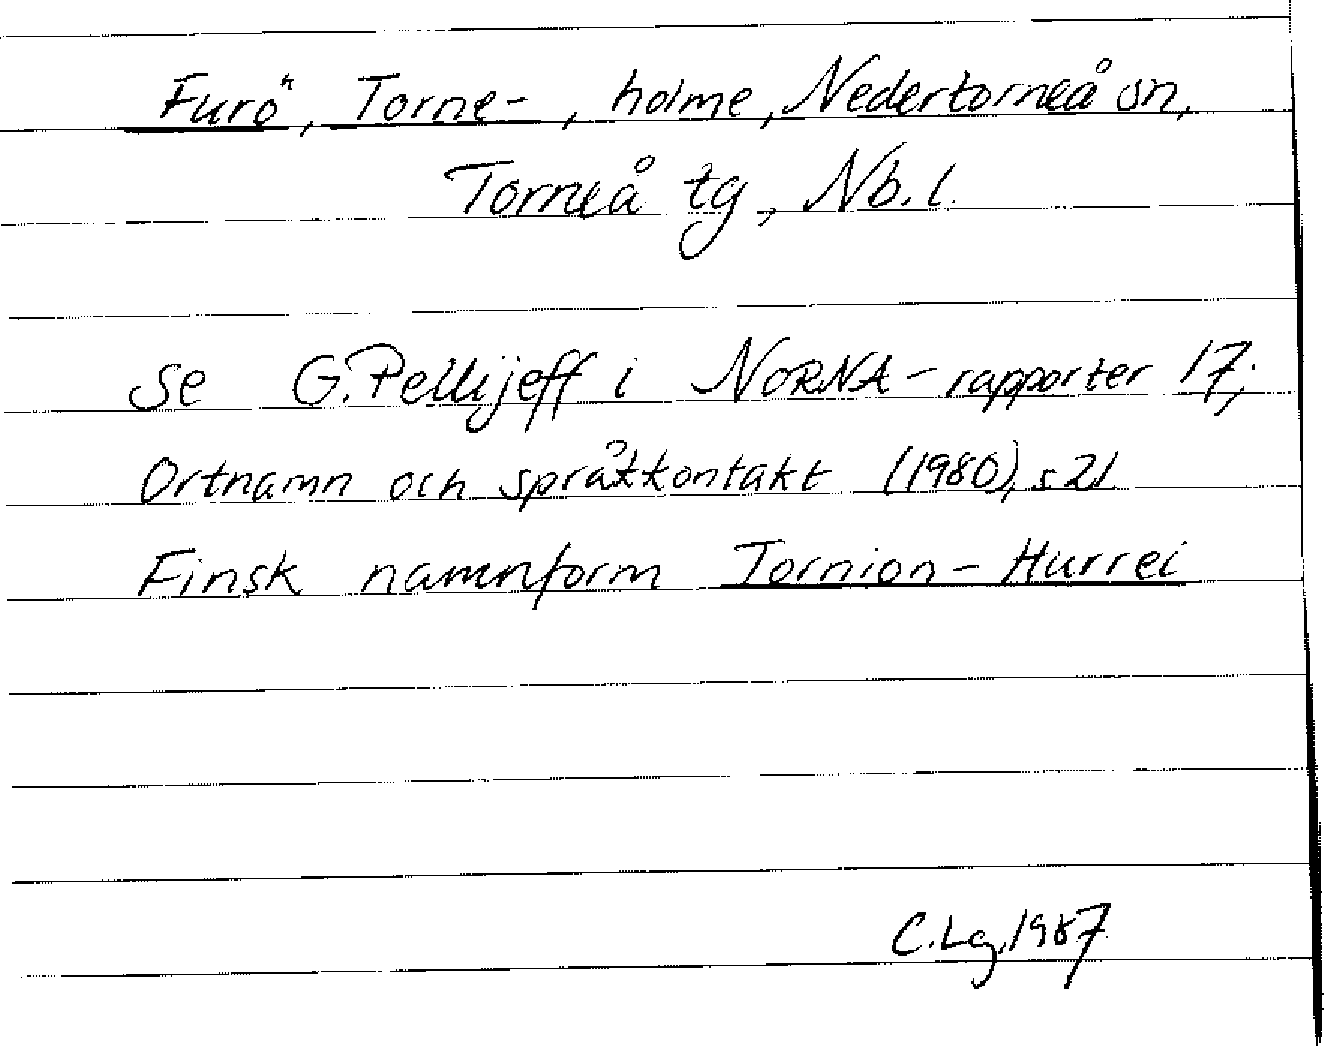 Furö, Torne-, holme, Nedertorneå sn,
Torneå tg, Nb. l.
Se G. Pellijeff i NORNA-rapporter 17;
Ortnamn och språkkontakt (1980), s 21
Finsk namnform Tornion-Hurrei
C.Lg. 1987